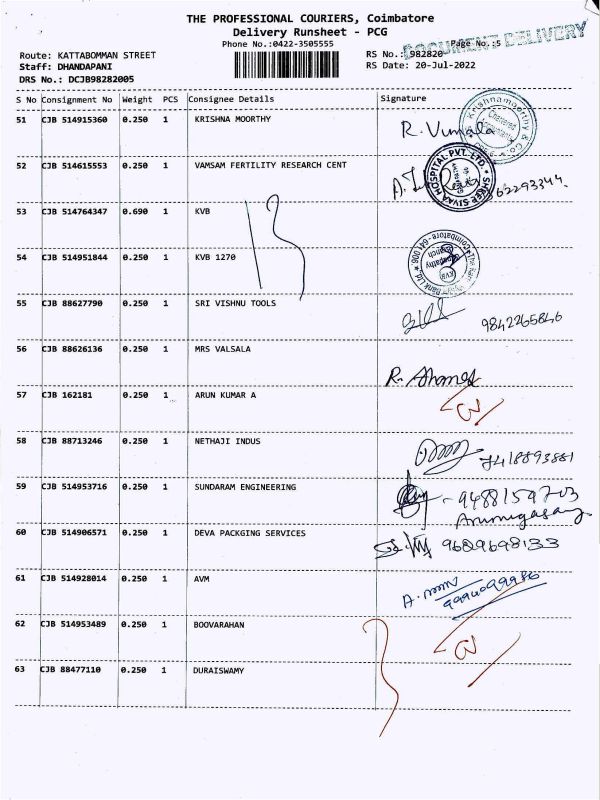 THE PROFESSIONAL COURIERS, Coimbatore
Delivery Runsheet - PCG
Phone No.:0422-3505555
Page No.:5
DOCUMENT DELIVERY
Route: KATTABOMMAN STREET
RS No.: 982820
Staff: DHANDAPANI
RS Date: 20-Jul-2022
DRS No.: DCJB98282005
S No Consignment No Weight PCS Consignee Details Signature
51 CJB 514915360 0.250 1 KRISHNA MOORTHY R. Vimala
Krishnamoorthy & Co. Chartered Accountants
52 CJB 514615553 0.250 1 VAMSAM FERTILITY RESEARCH CENT
SHREE SIVAA HOSPITAL PVT. LTD.
53 CJB 514764347 0.690 1 KVB
54 CJB 514951844 0.250 1 KVB 1270
Coimbatore - 641 006. KVB
55 CJB 88627790 0.250 1 SRI VISHNU TOOLS 9842265846
56 CJB 88626136 0.250 1 MRS VALSALA
R. Ahamed
57 CJB 162181 0.250 1 ARUN KUMAR A
58 CJB 88713246 0.250 1 NETHAJI INDUS 7418893881
59 CJB 514953716 0.250 1 SUNDARAM ENGINEERING - 9488159703
Arumugasamy
60 CJB 514906571 0.250 1 DEVA PACKGING SERVICES 9629698133
61 CJB 514928014 0.250 1 AVM
62 CJB 514953489 0.250 1 BOOVARAHAN
63 CJB 88477110 0.250 1 DURAISWAMY